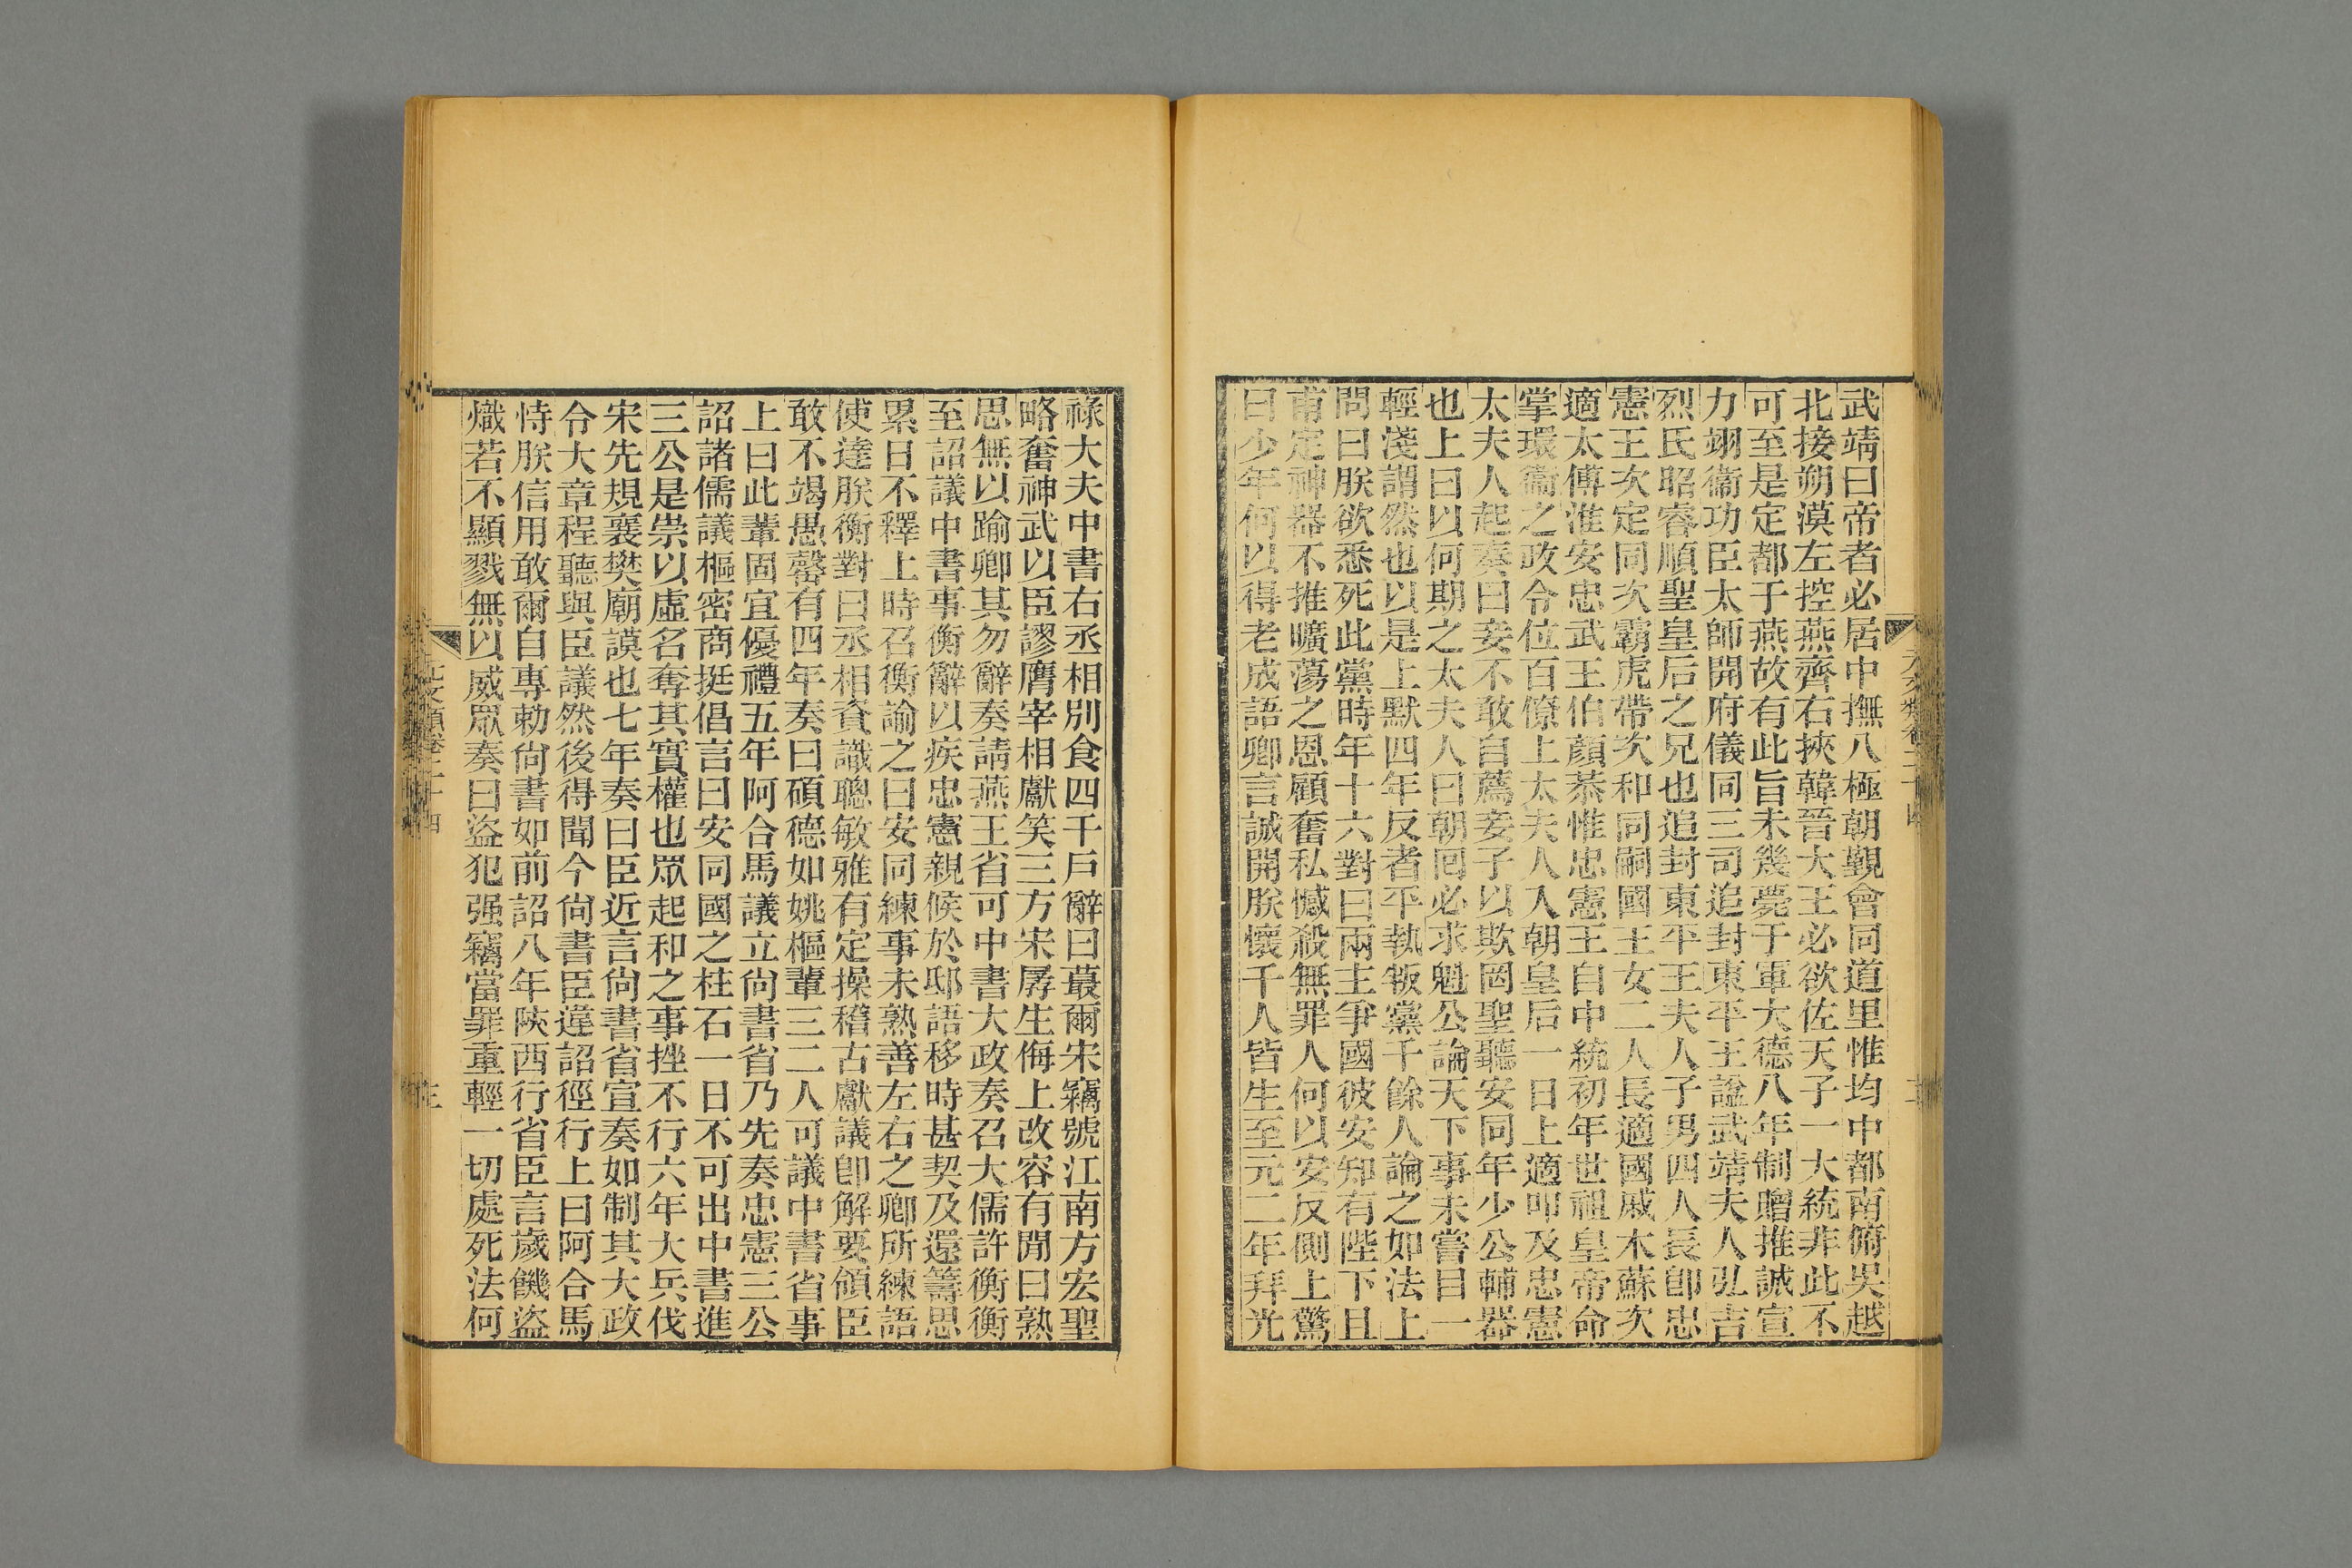 武靖曰帝者必居中撫八極朝覲會同道里惟均中都南俯吳越
北接朔漠左控燕齊右挾韓晉大王必欲佐天子一大統非此不
可至是定都于燕故有此旨未幾薨于軍大德八年制贈推誠宣
力翊衞功臣太師開府儀同三司追封東平王諡武靖夫人弘吉
烈氏昭睿順聖皇后之兄也追封東平王夫人子男四人長卽忠
憲王次定同次霸虎帶次和同嗣國王女二人長適國戚木蘇次
適太傅淮安忠武王伯顏恭惟忠憲王自中統初年世祖皇帝命
掌環衞之政令位百僚上太夫人入朝皇后一日上適叩及忠憲
太夫人起奏曰妾不敢自薦妾子以欺罔聖聽安同年少公輔器
也上曰以何期之太夫人曰朝囘必求魁公論天下事未嘗目一
輕淺謂然也以是上默四年反者平執叛黨千餘人論之如法上
問曰朕欲悉死此黨時年十六對曰兩主爭國彼安知有陛下且
甫定神器不推曠蕩之恩顧奮私憾殺無罪人何以安反側上驚
曰少年何以得老成語卿言誠開朕懷千人皆生至元二年拜光
祿大夫中書右丞相別食四千戶辭曰蕞爾宋竊號江南方宏聖
略奮神武以臣謬膺宰相獻笑三方宋孱生侮上改容有閒曰熟
思無以踰卿其勿辭奏請燕王省可中書大政奏召大儒許衡衡
至詔議中書事衡辭以疾忠憲親候於邸語移時甚契及還籌思
累日不釋上時召衡諭之曰安同練事未熟善左右之卿所練語
使達朕衡對曰丞相資識聰敏雅有定操稽古獻議卽解要領臣
敢不竭愚罄有四年奏曰碩德如姚樞輩三二人可議中書省事
上曰此輩固宜優禮五年阿合馬議立尙書省乃先奏忠憲三公
詔諸儒議樞密商挺倡言曰安同國之柱石一日不可出中書進
三公是崇以虛名奪其實權也眾起和之事挫不行六年大兵伐
宋先規襄樊廟謨也七年奏曰臣近言尙書省宣奏如制其大政
令大章程聽與臣議然後得聞今尙書臣違詔徑行上曰阿合馬
恃朕信用敢爾自專勅尙書如前詔八年陜西行省臣言歲饑盜
熾若不顯戮無以威眾奏曰盜犯强竊當罪重輕一切處死法何